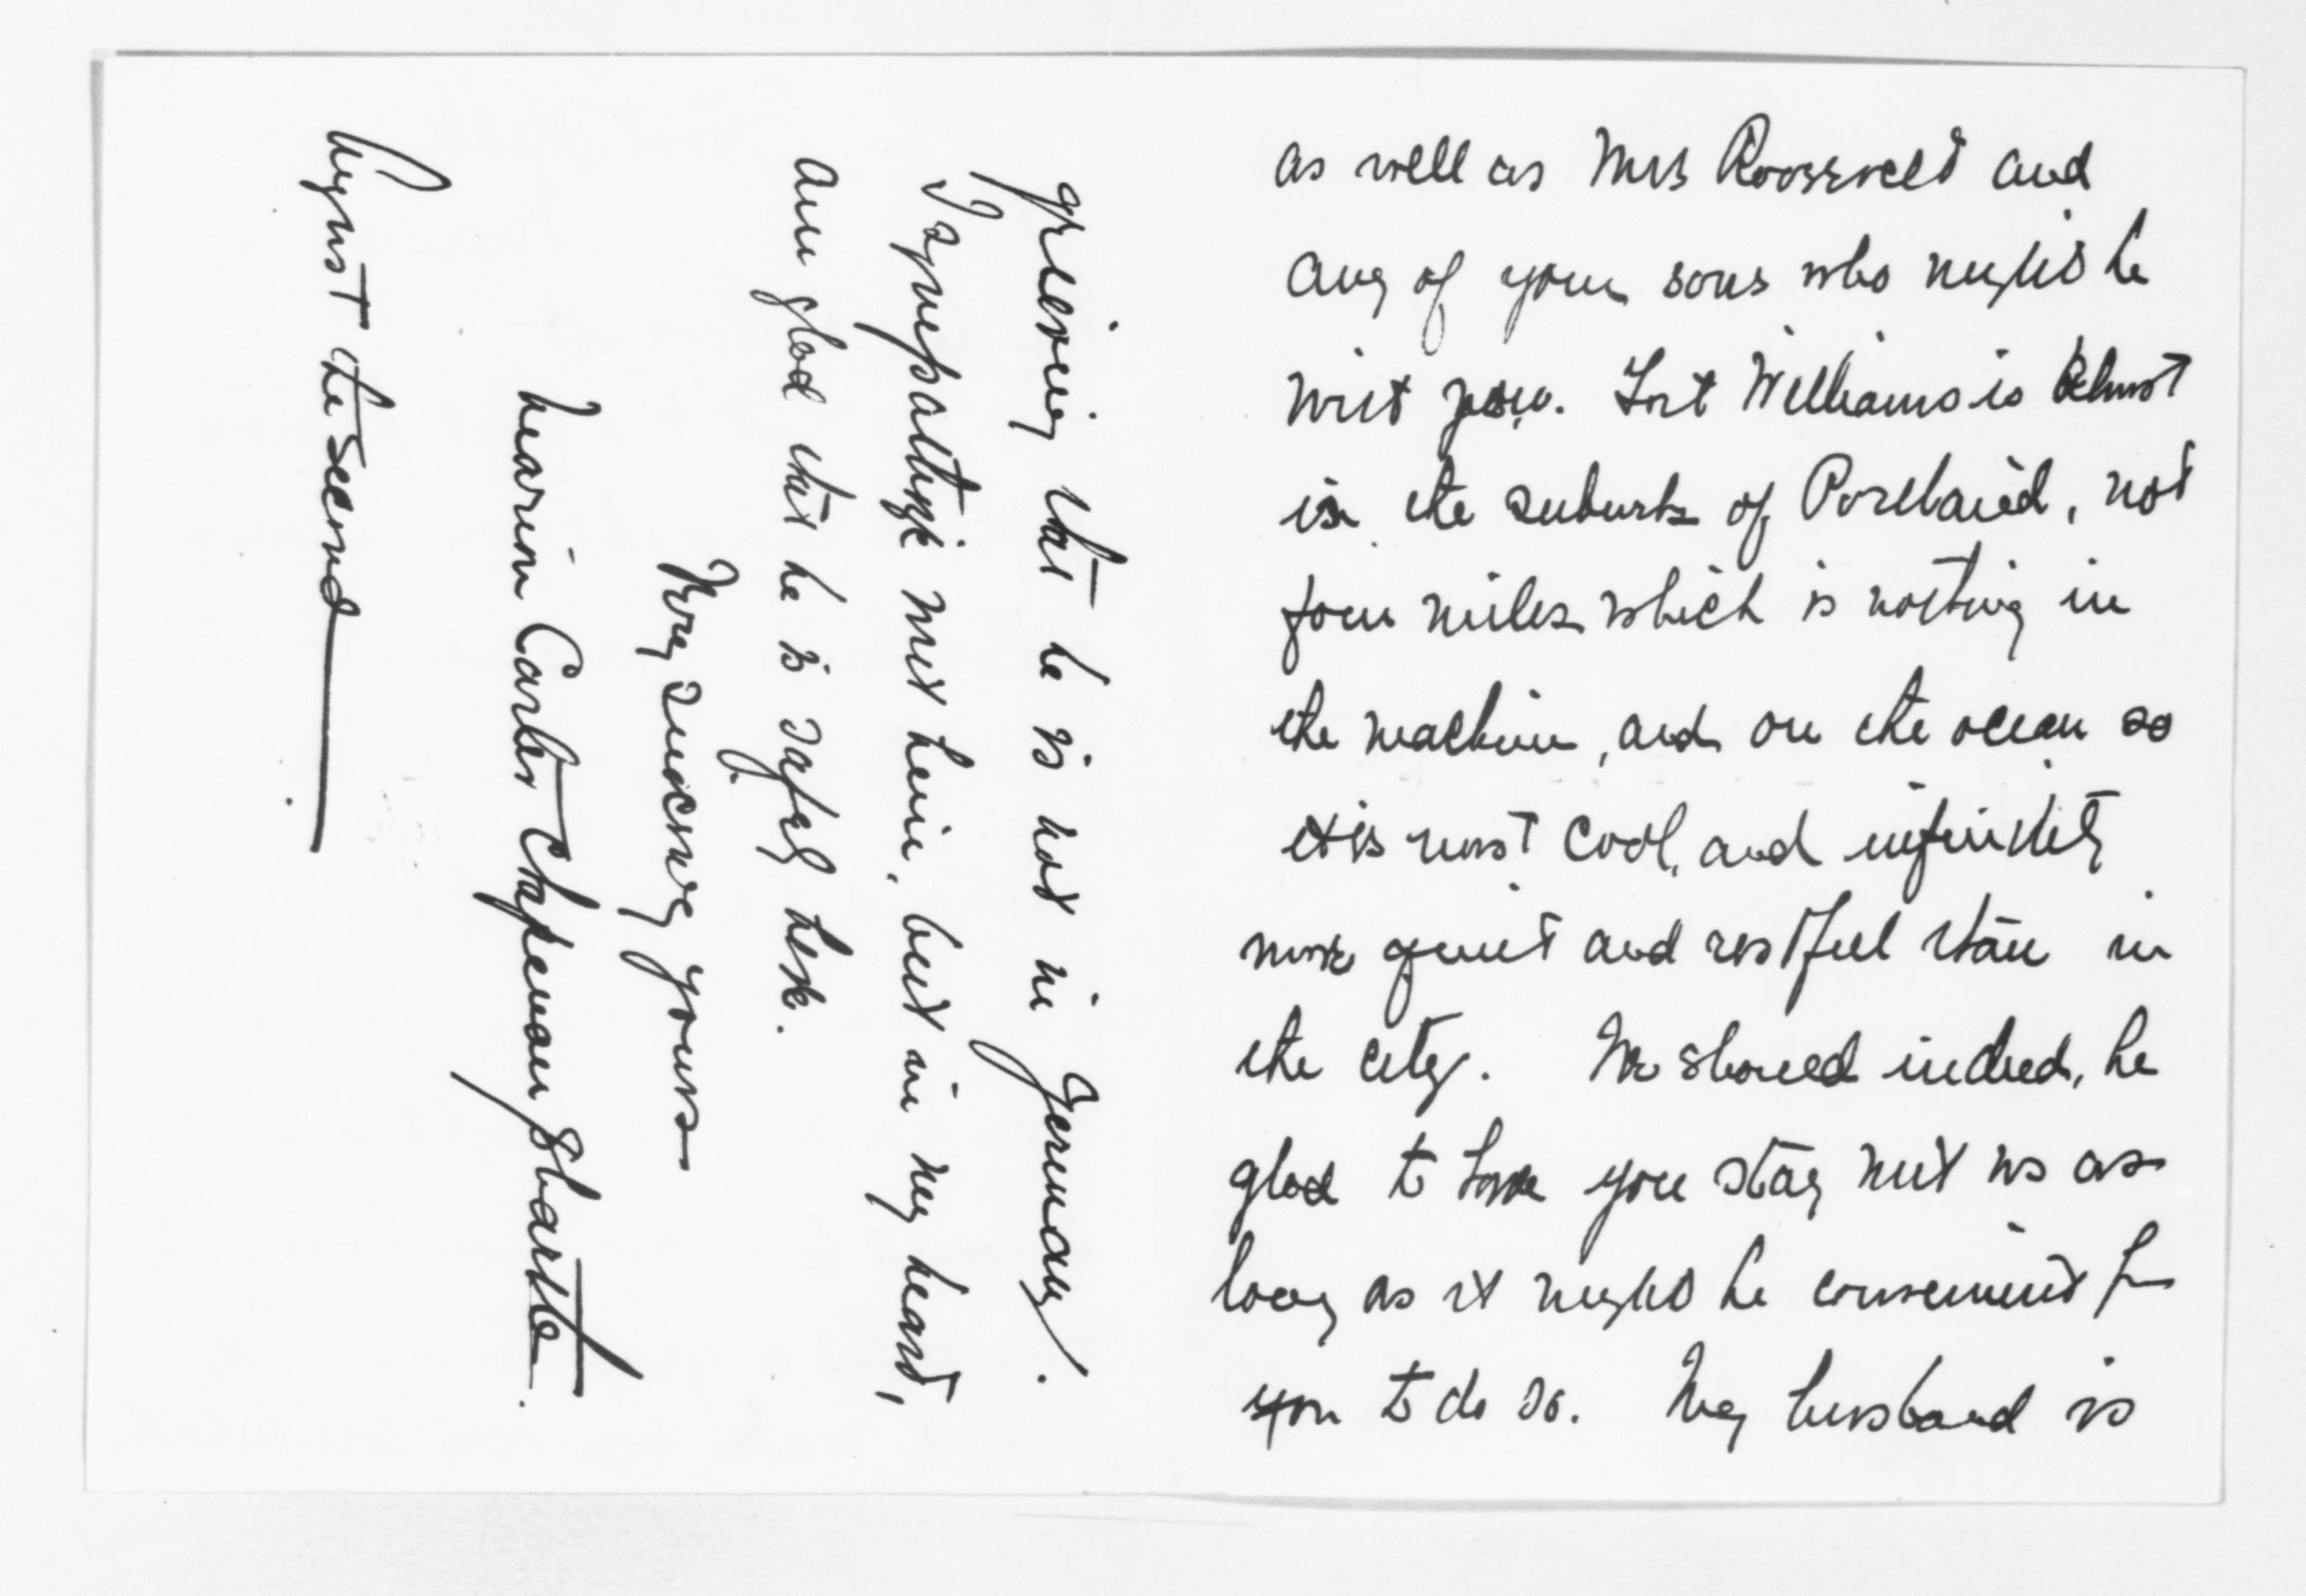 as well as Mrs Roosevelt and
any of your sons who might be
with you. Fort Williams is almost
in the suburbs of Portland, not
four miles which is nothing in
the machine, and on the ocean so
it is most cool, and infinitely
more quiet and restful than in
the city. We should indeed, be
glad to have you stay with us as
long as it might be convenient for
you to do so. My husband is
grieving that he is not in Germany.
I sympathize with him, but in my heart,
am glad that he is safely here.
Very sincerely yours
Marion Carter Chapman Shartle.
August the second